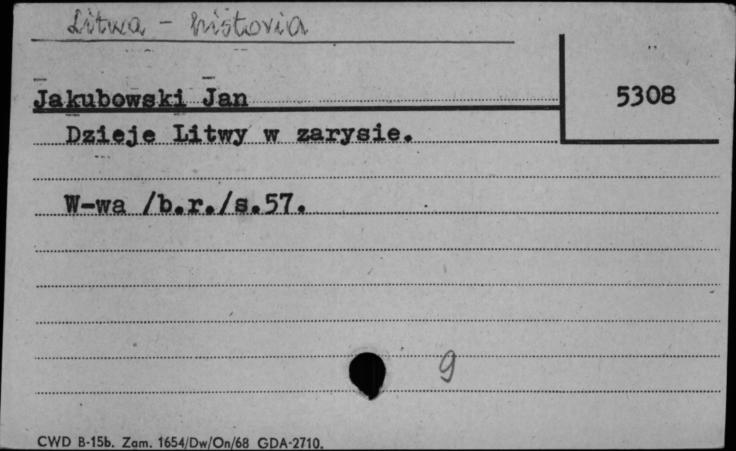 Litwa - historia
Jakubowski Jan
5308
Dzieje Litwy w zarysie.
W-wa /b.r./s.57.
9
CWD B-15b. Zam. 1654/Dw/On/68 GDA-2710.